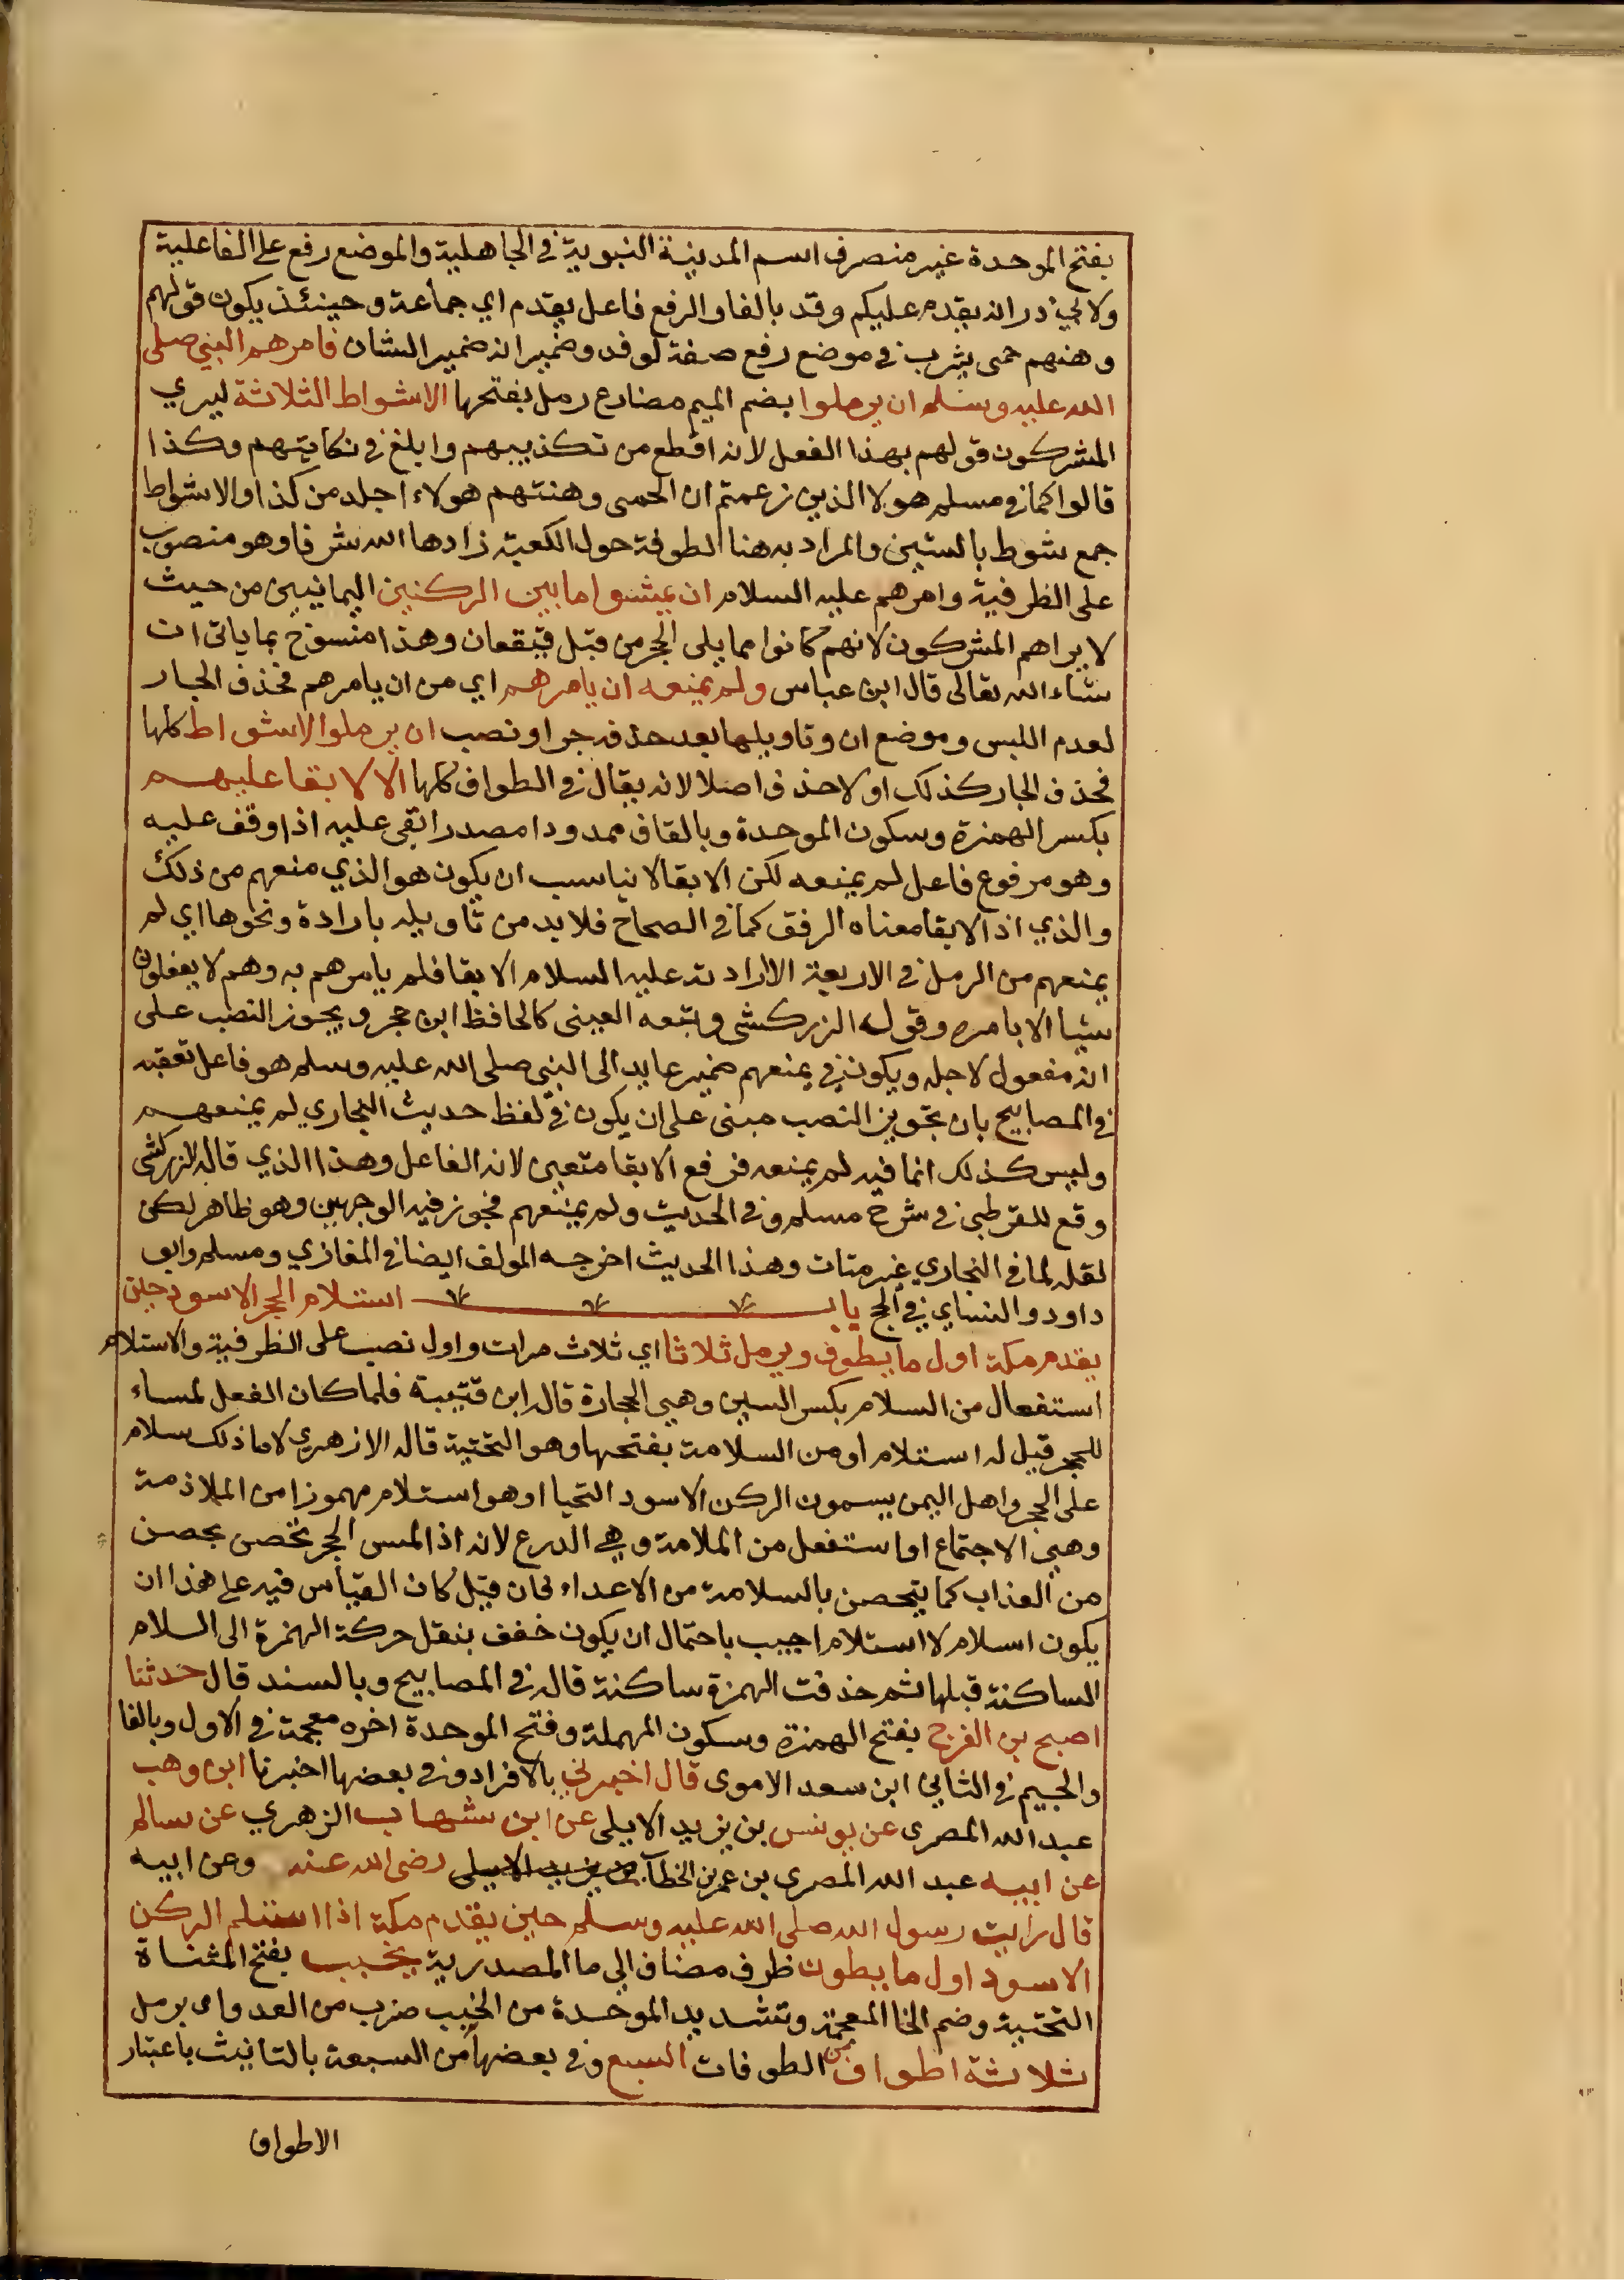 بفتح الموحدة غير منصرف اسم المدينة النبوية في الجاهلية والموضع رفع على الفاعلية
ولابي ذر انه يقدم عليكم وقد بالفا والرفع فاعل يقدم اي جماعة وحينئذ يكون قولهم
وهنهم حمى يثرب في موضع رفع صفة لوفد وضمير انه ضمير الشان فامرهم النبي صلى
الله عليه وسلم ان يرملوا بضم الميم مضارع رمل بفتحها الاشواط الثلاثة ليري
المشركون قولهم بهذا الفعل لانه اقطع من تكذيبهم وابلغ في نكايتهم وكذا
قالوا كما في مسلم هولا الذين زعمتم ان الحمى وهنتهم هولاء اجلد من كذا والاشواط
جمع شوط بالشين والمراد به هنا الطوفة حول الكعبة زادها الله شرفا وهو منصوب
على الظرفية وامرهم عليه السلام ان يمشوا ما بين الركنين اليمانيين من حيث
لا يراهم المشركون لانهم كانوا مما يلى الحجر من قبل قيقعان وهذا منسوخ بما ياتى ان
شاء الله تعالى قال ابن عباس ولم يمنعه ان يامرهم اي من ان يامرهم فحذف الجار
لعدم اللبس وموضع ان وتاويلها بعد حذفه جر او نصب ان يرملوا الاشواط كلها
فحذف الجار كذلك او لا حذف اصلا لانه يقال في الطواف كلها الا الابقا عليهم
بكسر الهمزة وسكون الموحدة وبالقاف ممدودا مصدر ابقى عليه اذا وقف عليه
وهو مرفوع فاعل لم يمنعه لكن الابقا لا يناسب ان يكون هو الذي منعهم من ذلك
والذي اذ الابقا معناه الرفق كما في الصحاح فلا بد من تاويله بارادة ونحوها اي لم
يمنعهم من الرمل في الاربعة الا ارادته عليه السلام الابقا فلم يامرهم به وهم لا يفعلون
شيا الا بامره وقول الزركشى وتبعه العينى كالحافظ ابن حجر ويجوز النصب على
انه مفعول لاجله ويكون في يمنعهم ضمير عايد الى النبي صلى الله عليه وسلم هو فاعل تعقبه
في المصابيح بان تجويز النصب مبنى على ان يكون في لفظ حديث البخاري لم يمنعهم
وليس كذلك انما فيه لم يمنعه فرفع الابقا متعين لانه الفاعل وهذا الذي قاله الزركشى
وقع للقرطبى في شرح مسلم وفي الحديث ولم يمنعهم فجوز فيه الوجهين وهو ظاهر لكن
نقله لما في البخاري غير متات وهذا الحديث اخرجه المولف ايضا في المغازي ومسلم وابو
داود والنساي في الحج باب استلام الحجر الاسود حين
يقدم مكة اول ما يطوف ويرمل ثلاثا اي ثلاث مرات واول نصب على الظرفية والاستلام
استفعال من السلام بكسر السين وهي الحجارة قاله ابن قتيبة فلما كان الفعل لمساء
للحجر قيل له استلام او من السلامة بفتحها وهو التحتية قاله الازهري لاما ذلك سلام
على الحجر واهل اليمن يسمون الركن الاسود التحيا او هو استلام مهموزا من الملاذمة
وهي الاجتماع او استفعل من الملامة وهي الدرع لانه اذا لمس الحجر تخصن بحصن
من العذاب كما يتحصن بالسلامة من الاعداء فان قيل كان القياس فيه على هذا ان
يكون اسلام لا استلام اجيب باحتمال ان يكون خفف بنقل حركة الهمزة الى السلام
الساكنة قبلها ثم حذفت الهمزة ساكنة قاله في المصابيح وبالسند قال حدثنا
اصبح بن الفرج بفتح الهمزة وسكون المهملة وفتح الموحدة اخره معجمة في الاول وبالفا
والجيم في الثاني ابن سعد الاموى قال اخبرني بالافراد وفي بعضها اخبرنا ابن وهب
عبد الله المصرى عن يونس بن يزيد الايلى عن ابن شهاب الزهري عن سالم
عن ابيه عبد الله المصري بن عمر بن الخطاب بن يزيد الايلى رضى الله عنه وعن ابيه
قال رايت رسول الله صلى الله عليه وسلم حين يقدم مكة اذا استلم الركن
الاسود اول ما يطوف ظرف مضاف الي ما المصدرية يخبب بفتح المثناة
التحتية وضم الخا المعجمة وتشديد الموحدة من الخبب ضرب من العدو اى يرمل
ثلاثة اطواف من الطوفات السبع وفي بعضها من السبعة بالتانيث باعتبار
الاطواف